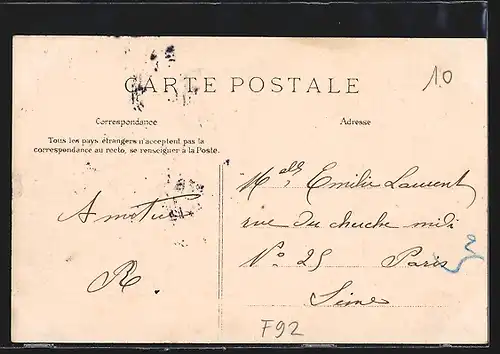 10
CARTE POSTALE
Correspondance
Adresse
Tous les pays étrangers n'acceptent pas la
correspondance au recto, se renseigner à la Poste.
Melle Emilie Laurent
rue du cherche midi
No. 25 Paris
Seine
R
F92